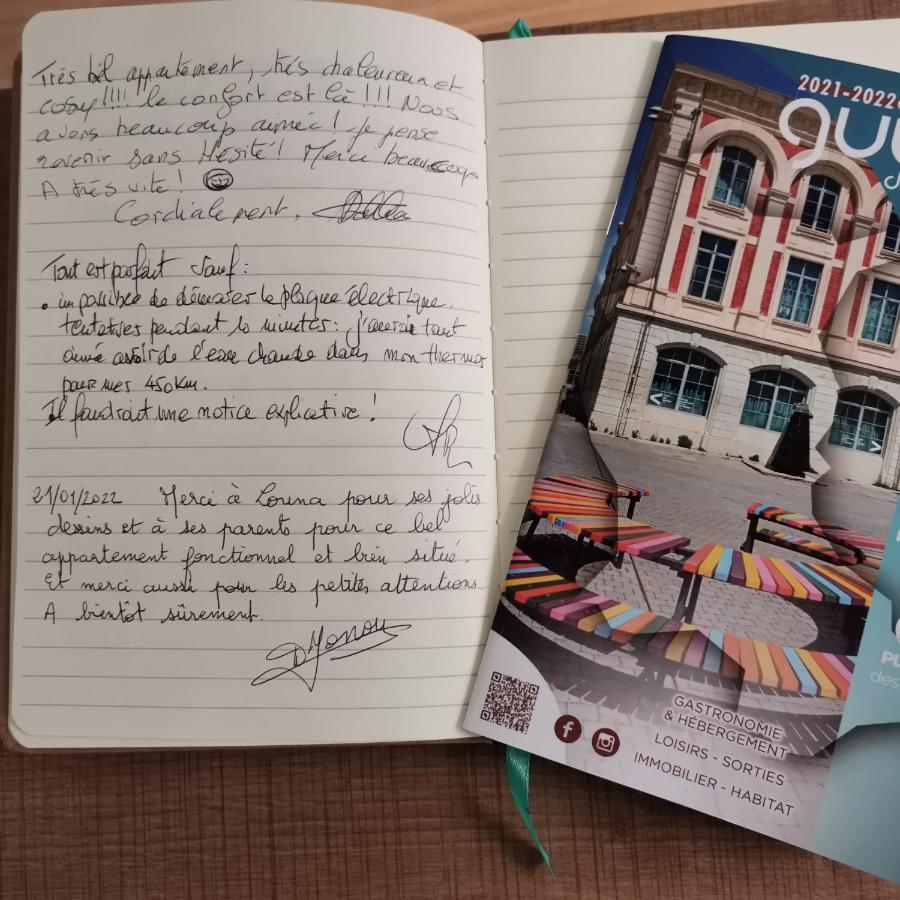 Très bel appartement, très chaleureux et
cosy!!!! le confort est là!!! Nous
avons beaucoup aimé! Je pense
revenir sans Hésité! Merci beaucoup
A très vite!
Cordialement,
Tout est parfait Sauf:
• impossible de démarrer la plaque électrique.
tentatives pendant 10 minutes: j'aurais tant
aimé avoir de l'eau chaude dans mon thermos
pour mes 450km.
Il faudrait une notice explicative!
21/01/2022 Merci à Louna pour ses jolis
dessins et à ses parents pour ce bel
appartement fonctionnel et bien situé.
Et merci aussi pour les petites attentions
A bientôt sûrement.
2021-2022
GASTRONOMIE
& HÉBERGEMENT
LOISIRS - SORTIES
IMMOBILIER - HABITAT
des